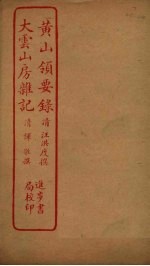 黄山領要錄
清 汪洪度撰
大雲山房雜記
清 惲敬撰
進步書
局校印